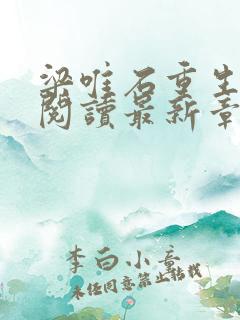 梁唯石重生
閱讀最新章
李白小意
未任同意禁止转载